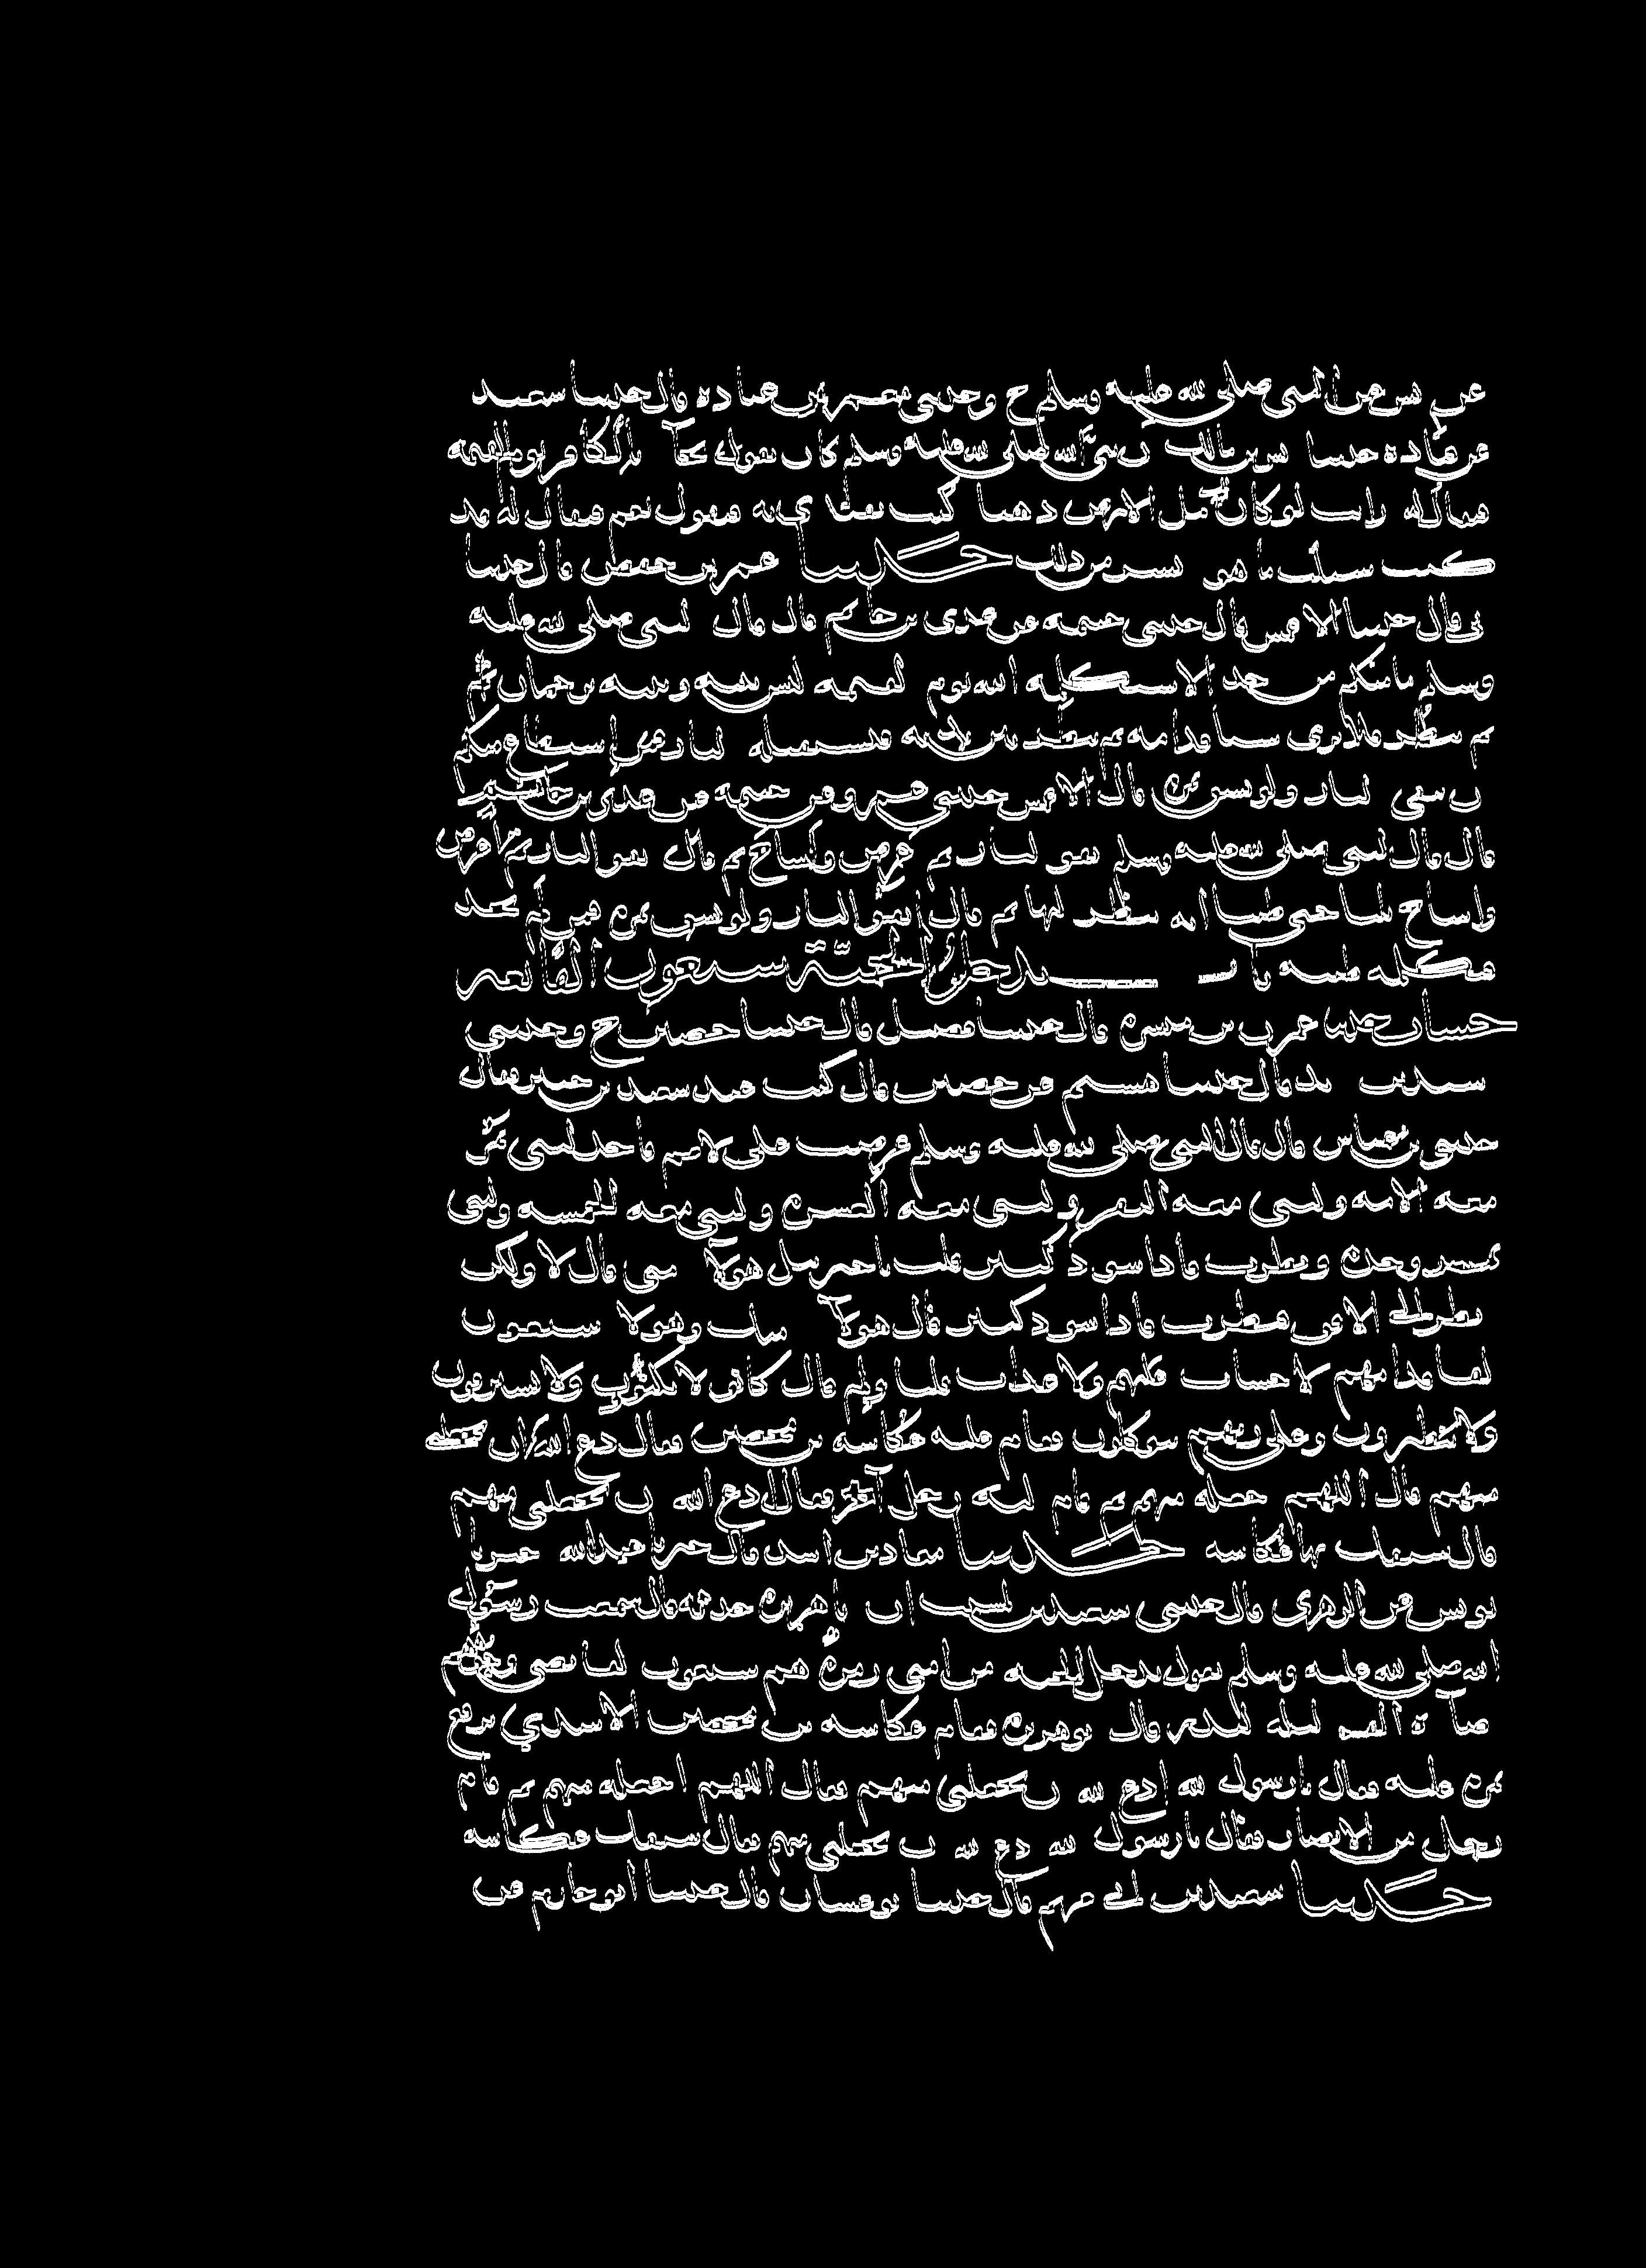 عن انس عن النبي صلى الله عليه وسلم ح وحدثني محمد بن معمر قال حدثنا روح بن عبادة قال حدثنا سعيد
ان نبي الله صلى الله عليه وسلم كان يقول يجآ بالكافر يوم القيمة
فيقال له ارايت لو كان لك مل الارض ذهبا اكنت تفتدي به فيقول نعم فيقال له قد
كنت سيلت ما هو ايسر من ذلك حدثنا عمر بن حفص قال حدثنا
ابي قال حدثنا الاعمش قال حدثني خيثمة عن عدي بن حاتم قال قال النبي صلى الله عليه
وسلم ما منكم من احد الا سيكلمه الله يوم القيمة ليس بينه وبينه ترجمان ثم
ينظر فلا يرى شيا قدامه ثم ينظر بين يديه فتستقبله النار فمن استطاع منكم
ان يتقي النار ولو بشق تمرة قال الاعمش حدثني عمرو عن خيثمة عن عدي بن حاتم
قال قال النبي صلى الله عليه وسلم اتقوا النار ثم اعرض واشاح ثم قال اتقوا النار ثم اعرض
واشاح ثلثا حتى ظننا انه ينظر اليها ثم قال اتقوا النار ولو بشق تمرة فمن لم يجد
فبكلمة طيبة باب يدخل الجنة سبعون الفا بغير
حساب حدثنا عمران بن ميسرة قال حدثنا ابن فضيل قال حدثنا حصين ح وحدثني
اسيد بن زيد قال حدثنا هشيم عن حصين قال كنت عند سعيد بن جبير فقال
حدثني ابن عباس قال قال النبي صلى الله عليه وسلم عرضت علي الامم فاخذ النبي يمر
معه الامة والنبي معه النفر والنبي معه العشرة والنبي معه الخمسة والنبي
يمر وحده فنظرت فاذا سواد كثير قلت يا جبريل هولآ امتي قال لا ولكن
انظر الى الافق فنظرت فاذا سواد كثير قال هولآ امتك وهولا سبعون
الفا قدامهم لا حساب عليهم ولا عذاب قلت ولم قال كانوا لا يكتوون ولا يسترقون
ولا يتطيرون وعلى ربهم يتوكلون فقام اليه عكاشة بن محصن فقال ادع الله ان يجعلني
منهم قال اللهم اجعله منهم ثم قام اليه رجل آخر فقال ادع الله ان يجعلني منهم
قال سبقك بها عكاشة حدثنا معاذ بن اسد قال اخبرنا عبدالله اخبرنا
يونس عن الزهري قال حدثني سعيد بن المسيب ان ابا هريرة حدثه قال سمعت رسول
الله صلى الله عليه وسلم يقول يدخل الجنة من امتي زمرة هم سبعون الفا تضي وجوههم
اضآة القمر ليلة البدر قال ابو هريرة فقام عكاشة بن محصن الاسدي يرفع
نمرة عليه فقال يا رسول الله ادع الله ان يجعلني منهم فقال اللهم اجعله منهم ثم قام
رجل من الانصار فقال يا رسول الله ادع الله ان يجعلني منهم فقال سبقك عكاشة
حدثنا سعيد بن ابي مريم قال حدثنا ابو غسان قال حدثنا ابو حازم عن